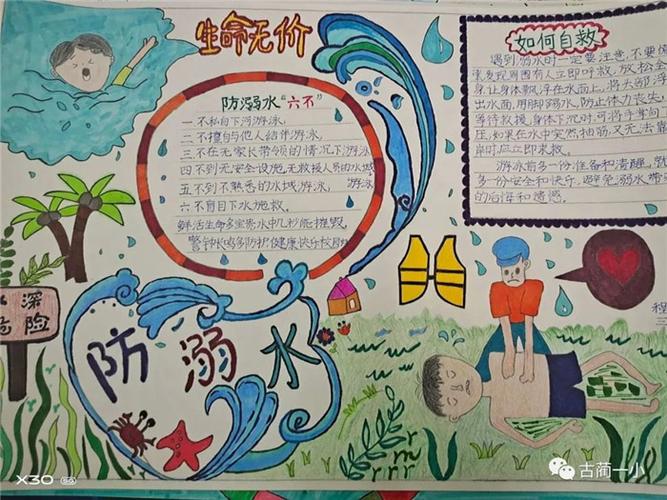 生命无价
防溺水“六不”
一不私自下河游泳,
二不擅自与他人结伴游泳,
三不在无家长带领的情况下游泳
四不到无安全设施,无救援人员的水域
五不到不熟悉的水域游泳, 游泳
六不盲目下水施救.
鲜活生命多宝贵水中几秒能摧毁,
警钟长鸣多防护健康快乐校园
如何自救
遇到溺水时一定要注意,不要慌
发现周围有人立即呼救,放松全
身让身体飘浮在水面上,将头部浮
出水面,用脚踢水,防止体力丧失,
等待救援,身体下沉时,可将手掌向
压,如果在水中突然抽筋,又无法靠
岸时,应立即求救.
游泳前多一份准备和清醒,就
多一份安全和快乐,避免溺水带
的后悔和遗憾.
深
险
防溺水
X30 5G
古蔺一小